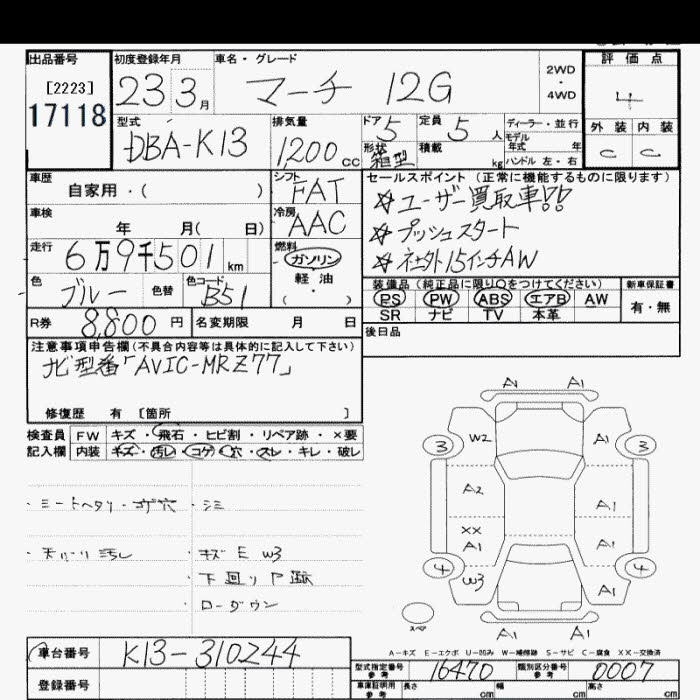 出品番号 初度登録年月 車名・グレード 評価点
[2223] 17118 23 3月 マーチ 12G 2WD・4WD 4
型式 DBA-K13 排気量 1200cc ドア 5 定員 5人 ディーラー・並行
モデル年式 年 外装 内装
形状 箱型 積載 kg ハンドル 左・右 C C
車歴 自家用・( ) シフト FAT セールスポイント (正常に機能するものに限ります)
車検 年 月( 日) 冷房 AAC ☆ユーザー買取車!!
☆プッシュスタート
走行 6万9千501km 燃料 ガソリン ☆社外15インチAW
軽油
( ・ )
色 ブルー 色替 色コード B51 装備品(純正品に限り○をつけてください) 新車保証書
PS PW ABS エアB AW 有・無
SR ナビ TV 本革
R券 8,800円 名変期限 月 日 後日品
注意事項申告欄(不具合内容等は具体的に記入して下さい)
ナビ型番「AVIC-MRZ77」
修復歴 有 [箇所 ]
検査員 FW キズ・飛石・ヒビ割・リペア跡・×要
記入欄 内装 キズ・汚レ・コゲ・穴・スレ・キレ・破レ
・シートヘタリ・コゲ穴 ・シミ
・天バリ汚レ ・キズ E W3
・下回りP跡
・ローダウン
A1 A1
3 W2 A1 3
A2 A1
XX A1 A1
4 W3 A1 4
スペア A1 A1
A-キズ E-エクボ U-凹み W-補修跡 S-サビ C-腐食 XX-交換済
車台番号 K13-310244 型式指定番号 参考 16470 類別区分番号 参考 0007
登録番号 車庫証明用 参考 長さ cm 幅 cm 高さ cm